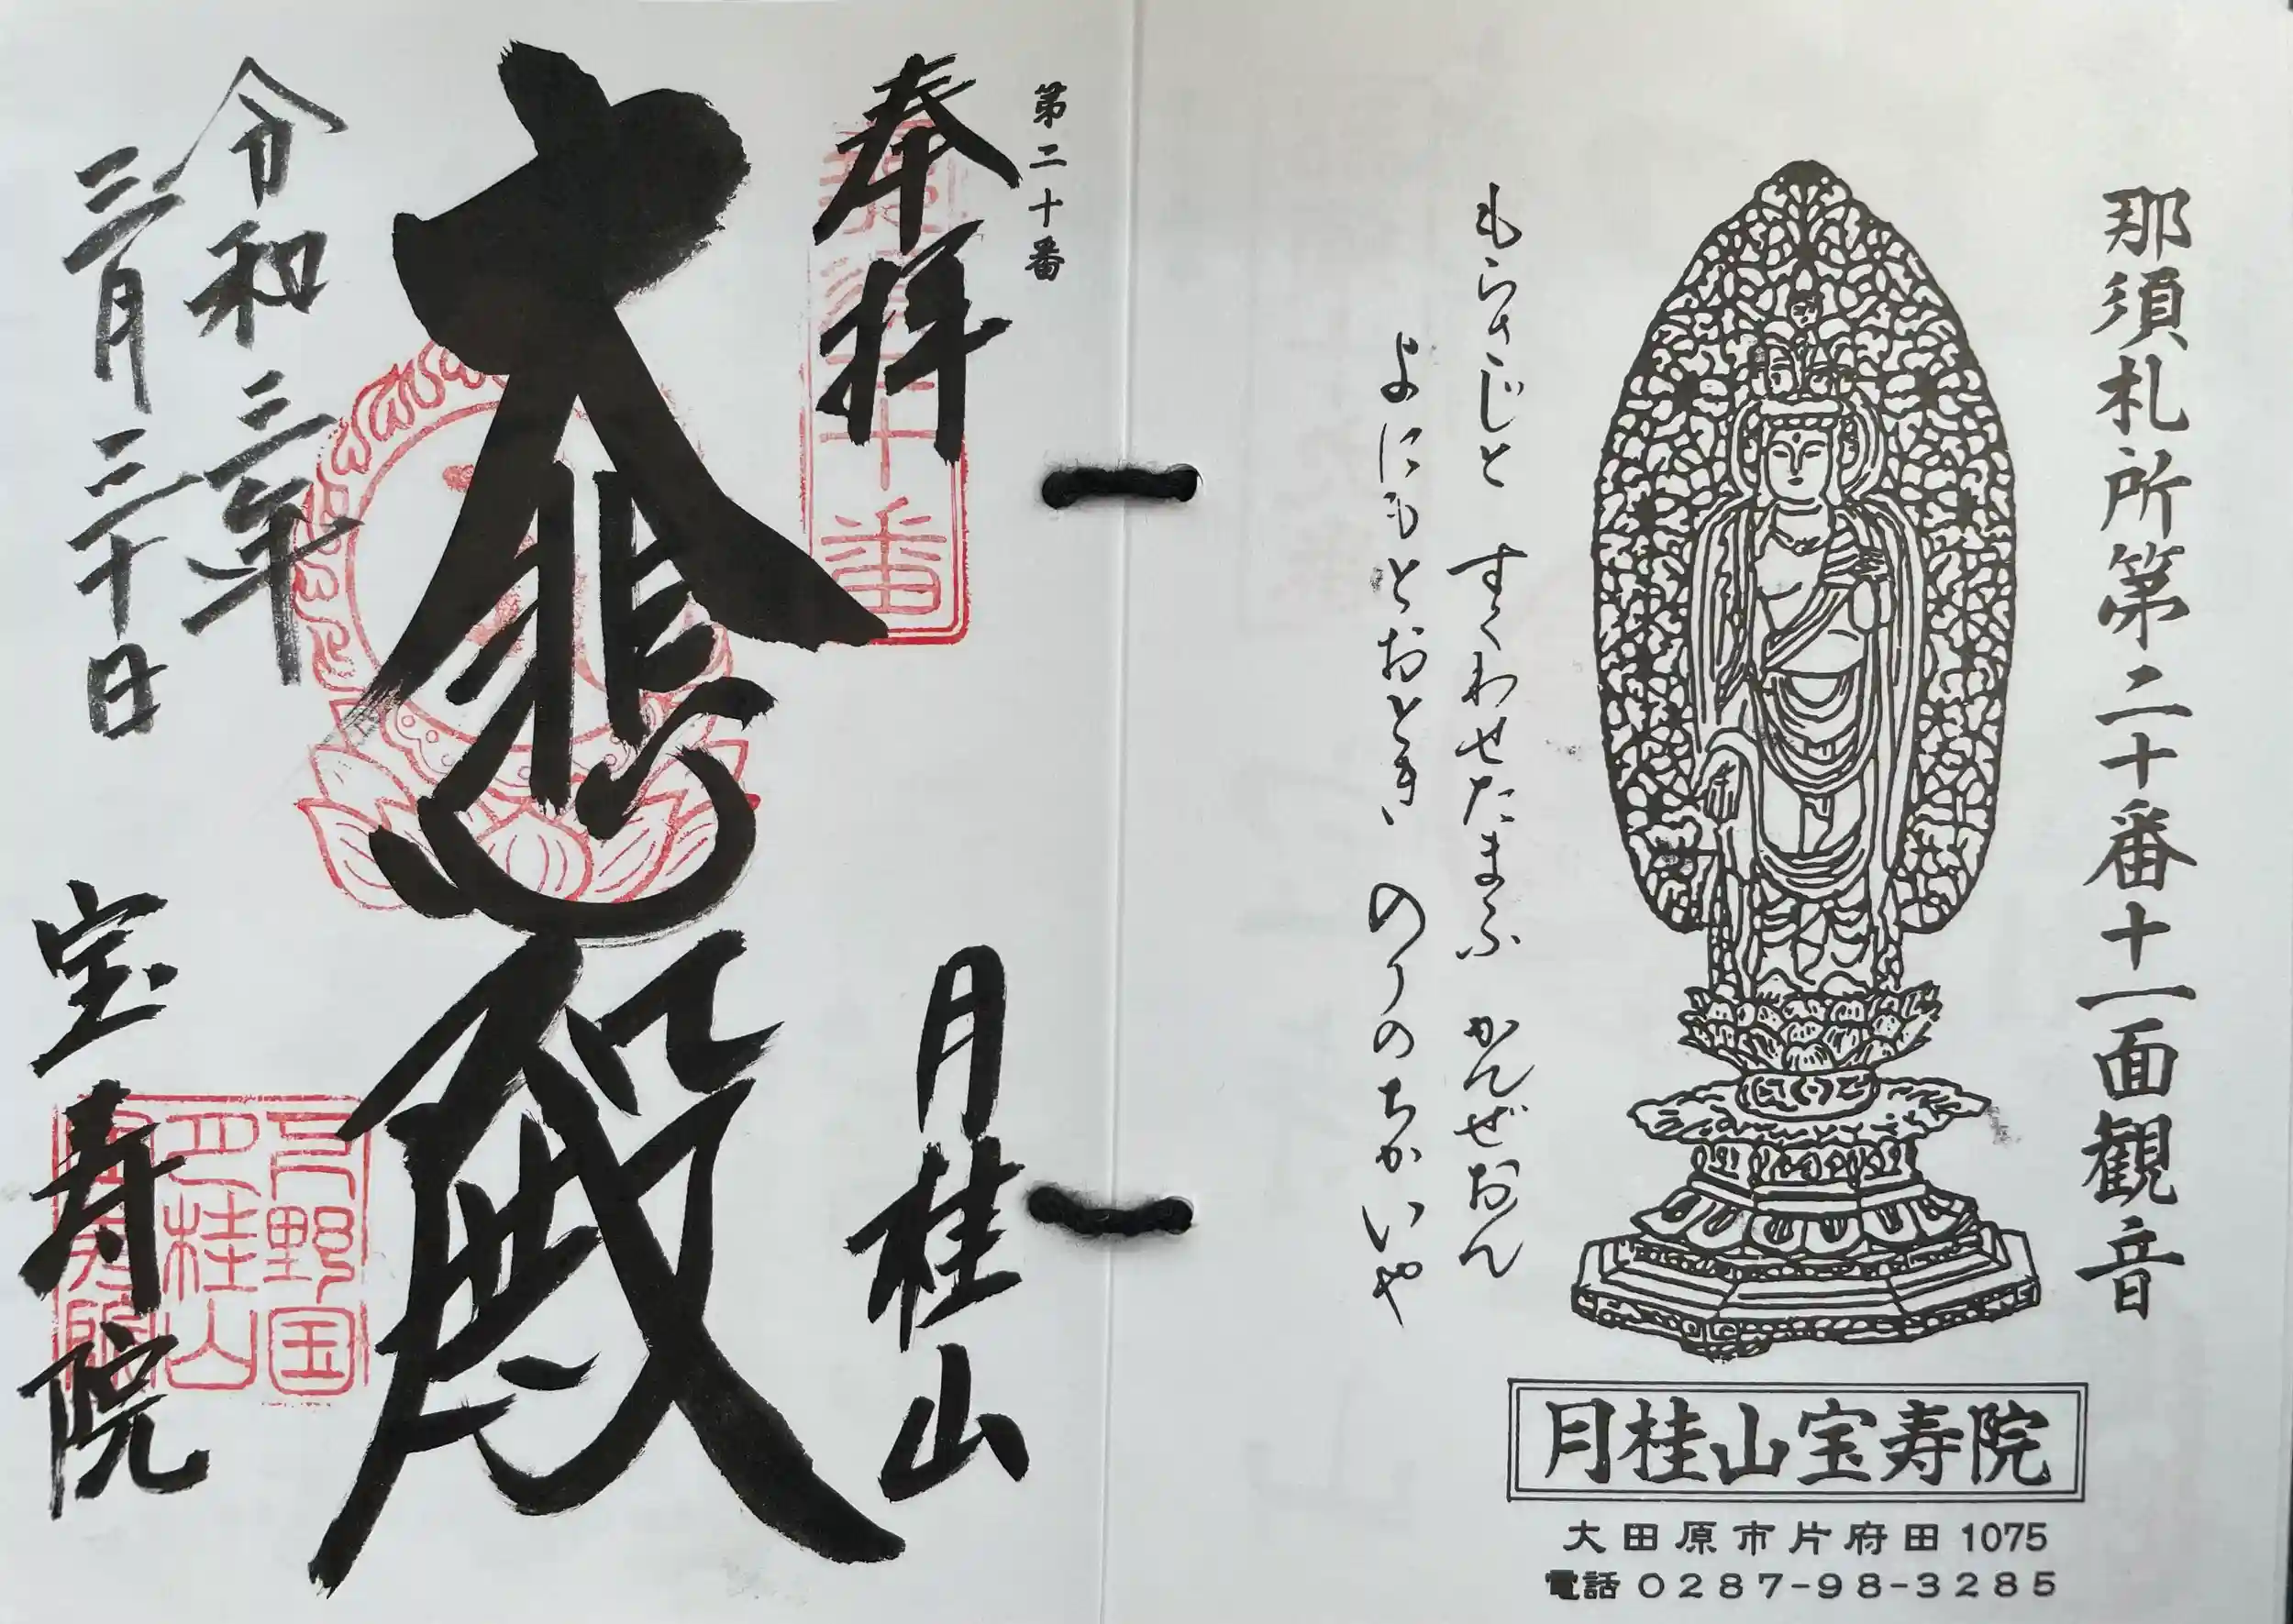 那須札所第二十番十一面観音
もらさじと すくわせたまふ かんぜおん
よにもとおとき のりのちかいや
月桂山宝寿院
大田原市片府田1075
電話 0287-98-3285
第二十番
奉拝
月桂山
大悲殿
令和三年
三月三十日
宝寿院